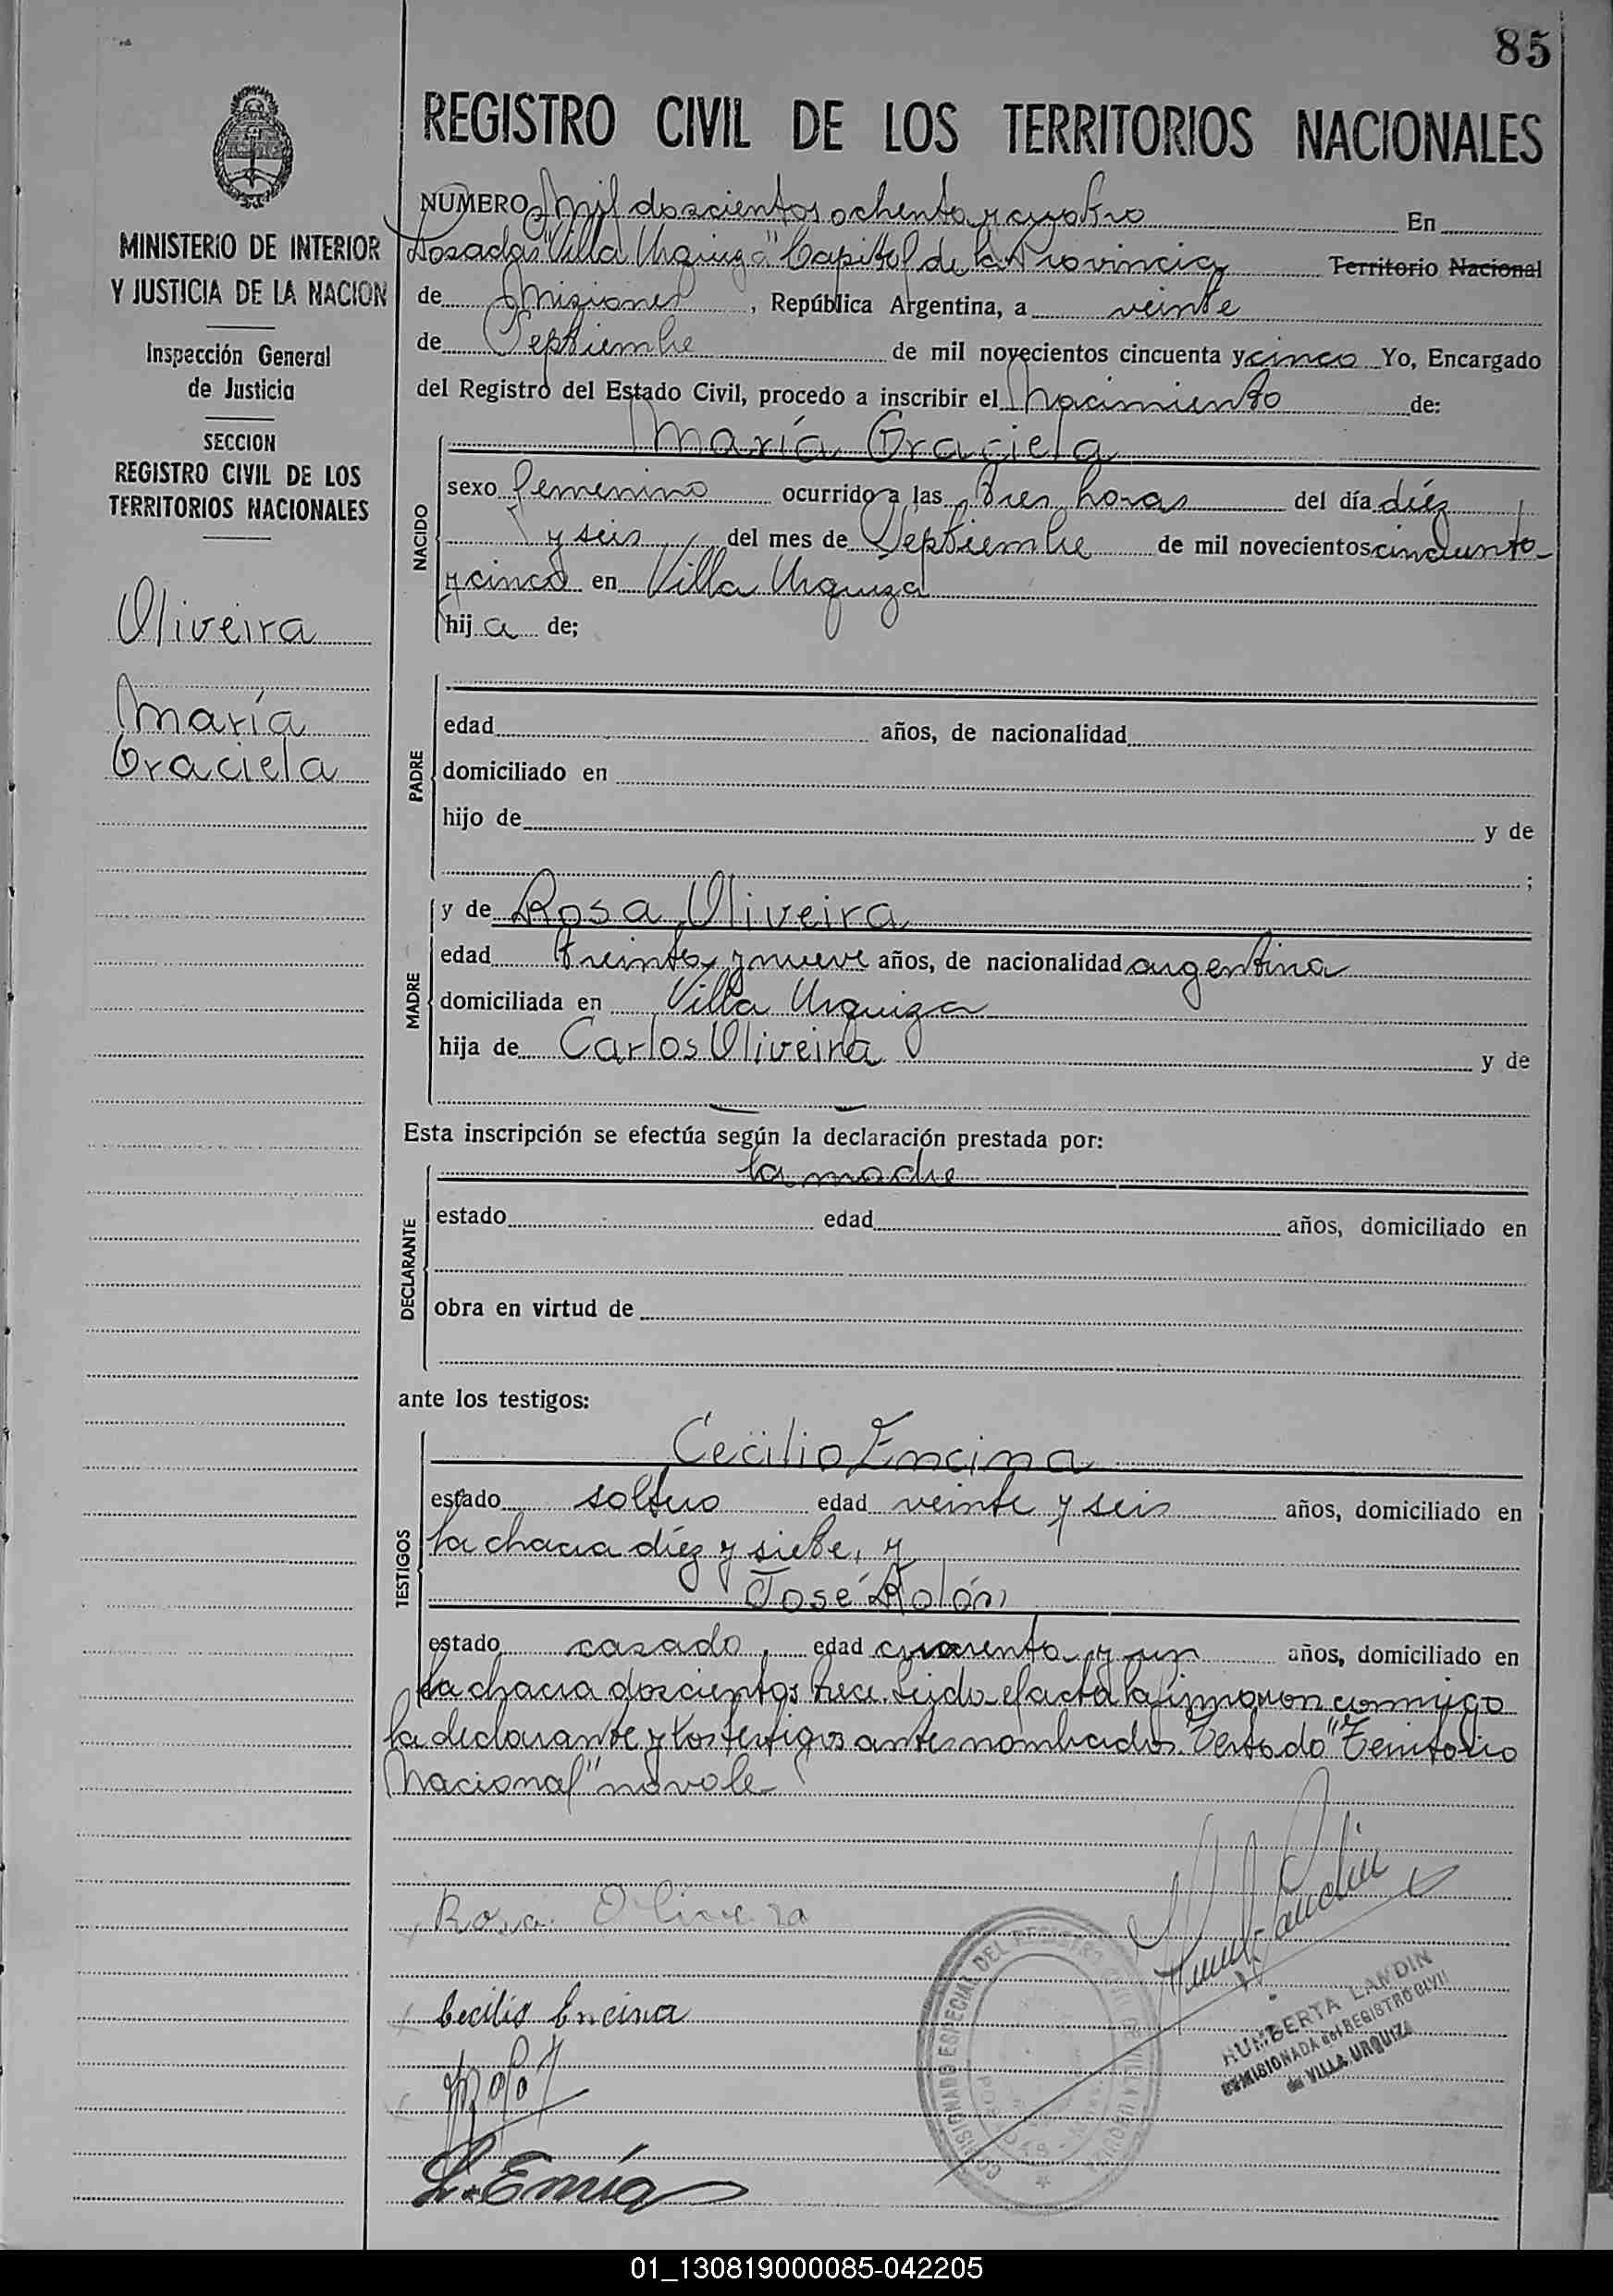 85
MINISTERIO DE INTERIOR
Y JUSTICIA DE LA NACION
Inspección General
de Justicia
SECCION
REGISTRO CIVIL DE LOS
TERRITORIOS NACIONALES
Oliveira
María
Graciela
REGISTRO CIVIL DE LOS TERRITORIOS NACIONALES
NUMERO Mil doscientos ochenta y cuatro En
Posadas "Villa Urquiza" Capital de la Provincia Territorio Nacional
de Misiones, República Argentina, a veinte
de Septiembre de mil novecientos cincuenta y cinco Yo, Encargado
del Registro del Estado Civil, procedo a inscribir el Nacimiento de:
María Graciela
NACIDO
sexo femenino ocurrido a las tres horas del día diéz
y seis del mes de Septiembre de mil novecientos cincuenta
y cinco en Villa Urquiza
hija de;
PADRE
edad años, de nacionalidad
domiciliado en
hijo de y de
;
MADRE
y de Rosa Oliveira
edad treinta y nueve años, de nacionalidad argentina
domiciliada en Villa Urquiza
hija de Carlos Oliveira y de
Esta inscripción se efectúa según la declaración prestada por:
la madre
DECLARANTE
estado edad años, domiciliado en
obra en virtud de
ante los testigos:
TESTIGOS
Cecilio Encina
estado soltero edad veinte y seis años, domiciliado en
la chacra diéz y siete, y
José Rolón
estado casado, edad cuarenta y un años, domiciliado en
la chacra doscientos trece. Leída el acta la firmaron conmigo
la declarante y los testigos antes nombrados. Testado "Territorio
Nacional" no vale
Rosa Oliveira
Cecilio Encina
HUMBERTA LANDIN
COMISIONADA del REGISTRO CIVIL
de VILLA URQUIZA
COMISIONADO ESPECIAL DEL REGISTRO CIVIL DE VILLA URQUIZA
POSADAS
01_130819000085-042205